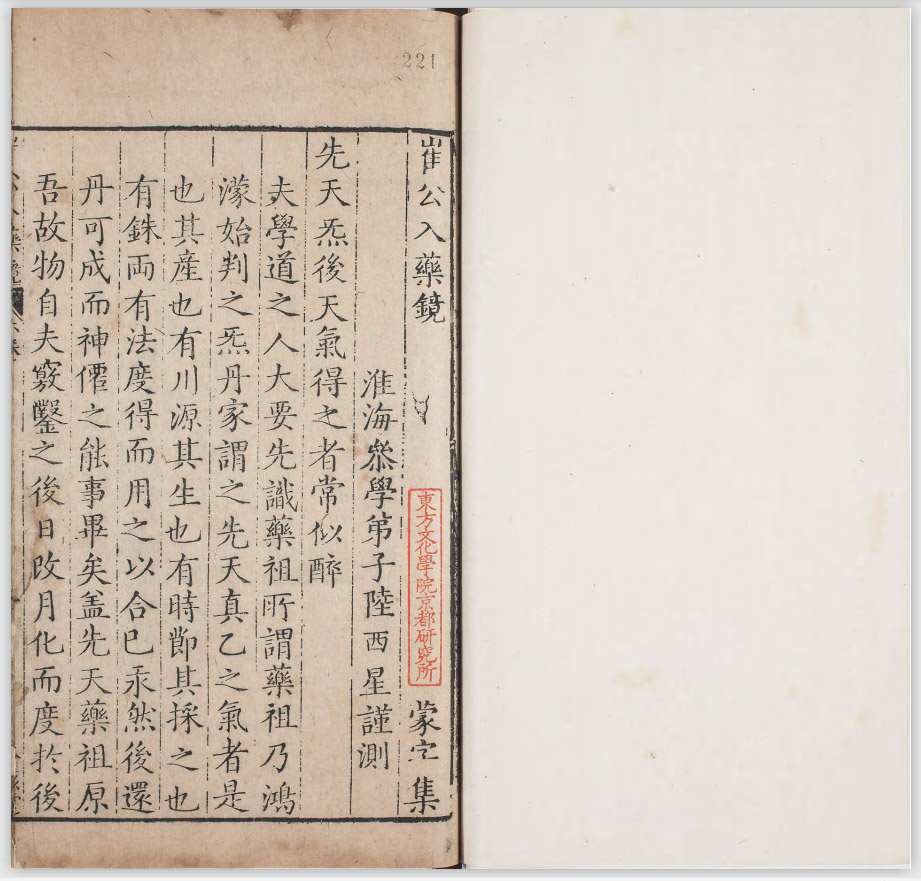 221
崔公入藥鏡
東方文化學院京都研究所
蒙字集
淮海叅學弟子陸西星謹測
先天炁後天氣得之者常似醉
夫學道之人大要先識藥祖所謂藥祖乃鴻
濛始判之炁丹家謂之先天真乙之氣者是
也其產也有川源其生也有時節其採之也
有銖両有法度得而用之以合巳汞然後還
丹可成而神僊之能事畢矣盖先天藥祖原
吾故物自夫竅鑿之後日改月化而度扵後